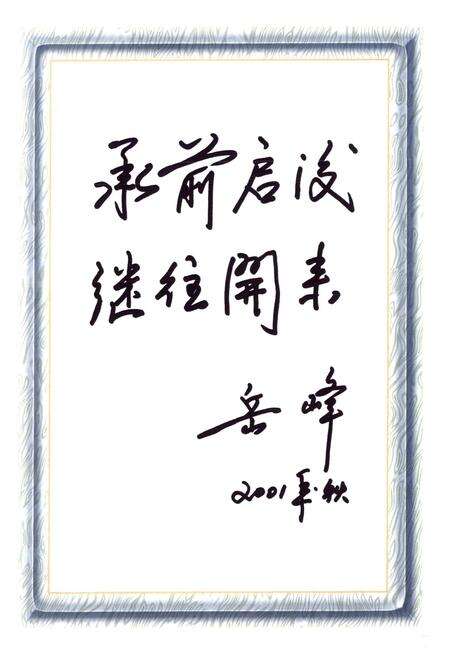 承前启后
继往開来
岳峰
2001年秋